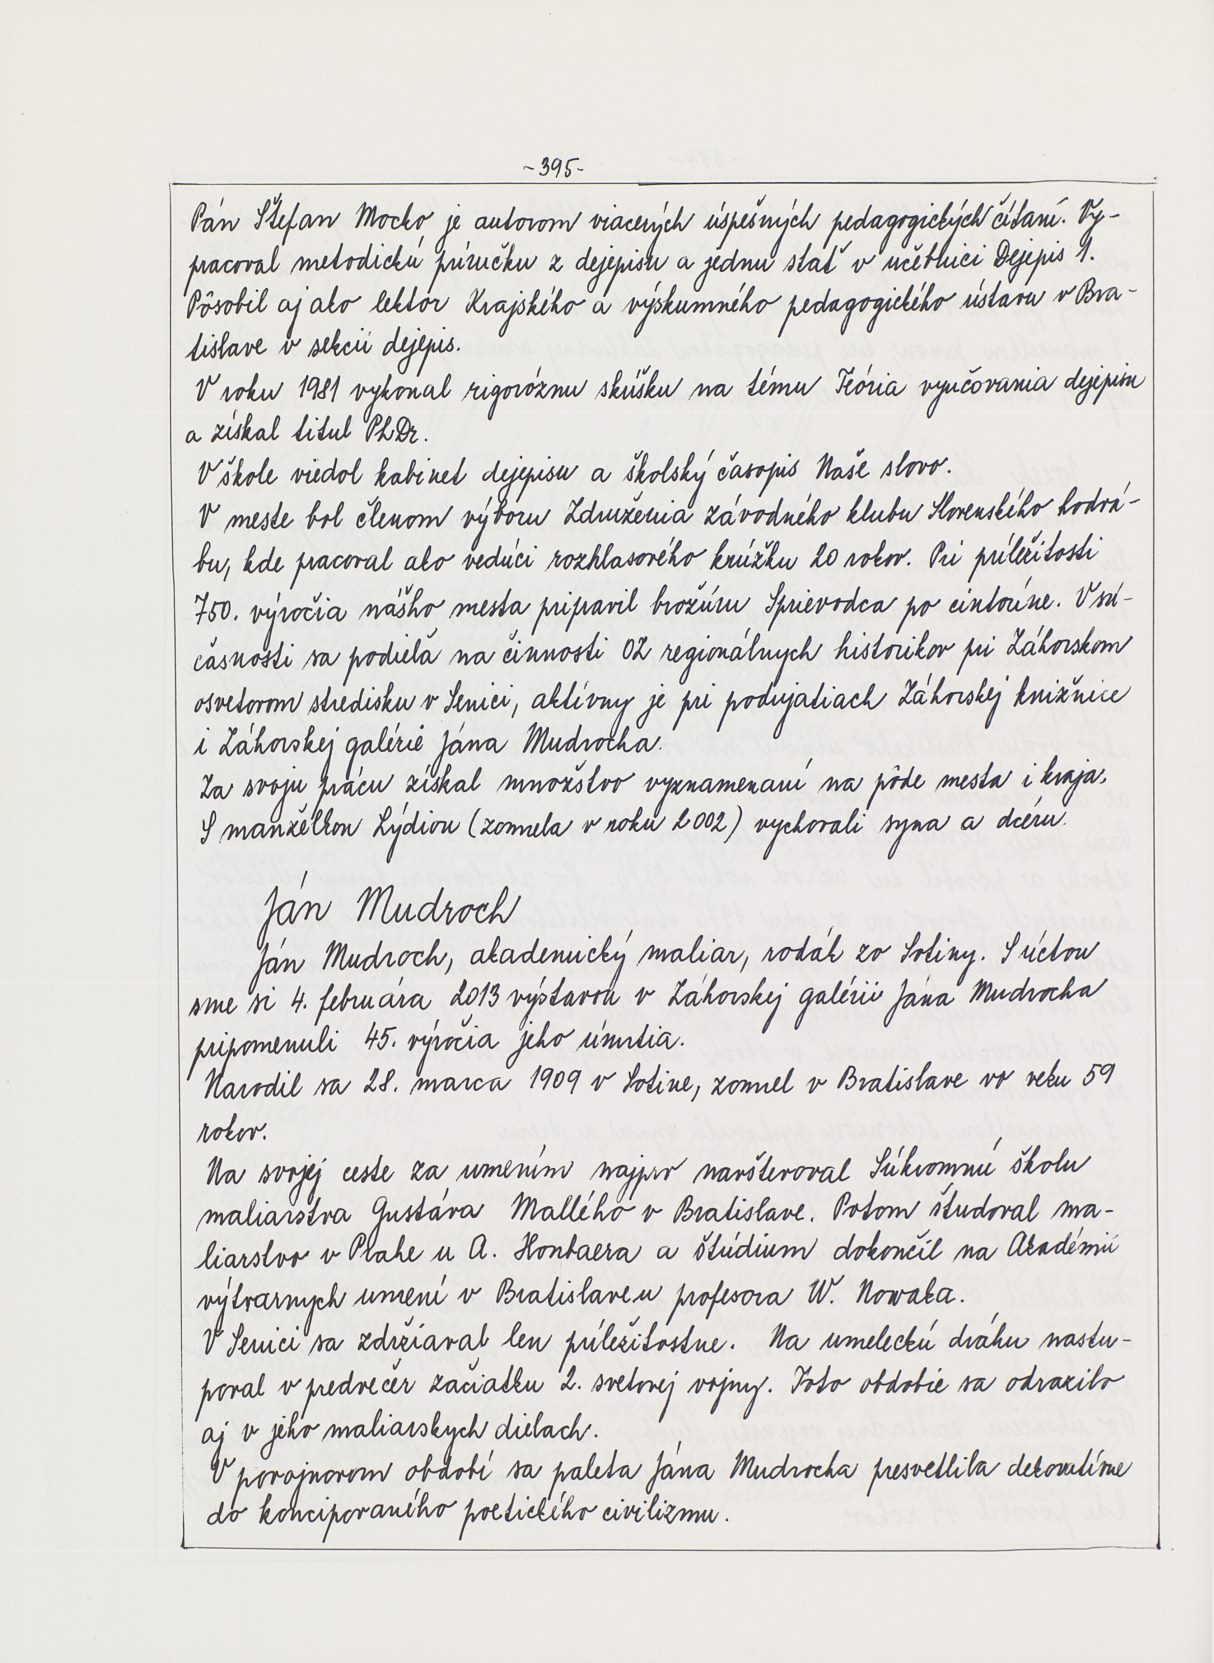 -395-
Pán Štefan Mocko je autorom viacerých úspešných pedagogických čítaní. Vy-
pracoval metodickú príručku z dejepisu a jednu stať v učebnici Dejepis 1.
Pôsobil aj ako lektor Krajského a výskumného pedagogického ústavu v Bra-
tislave v sekcii dejepis.
V roku 1981 vykonal rigoróznu skúšku na tému Teória vyučovania dejepisu
a získal titul PhDr.
V škole viedol kabinet dejepisu a školský časopis Naše slovo.
V meste bol členom výboru Združenia závodného klubu Slovenského hodvá-
bu, kde pracoval ako vedúci rozhlasového krúžku 20 rokov. Pri príležitosti
750. výročia nášho mesta pripravil brožúru Sprievodca po cintoríne. V sú-
časnosti sa podieľa na činnosti OZ regionálnych historikov pri Záhorskom
osvetovom stredisku v Senici, aktívny je pri podujatiach Záhorskej knižnice
i Záhorskej galérie Jána Mudrocha.
Za svoju prácu získal množstvo vyznamenaní na pôde mesta i kraja.
S manželkou Lýdiou (zomrela v roku 2002) vychovali syna a dcéru.
Ján Mudroch
Ján Mudroch, akademický maliar, rodák zo Sotiny. S úctou
sme si 4. februára 2013 výstavou v Záhorskej galérii Jána Mudrocha
pripomenuli 45. výročia jeho úmrtia.
Narodil sa 28. marca 1909 v Sotine, zomrel v Bratislave vo veku 59
rokov.
Na svojej ceste za umením najprv navštevoval Súkromnú školu
maliarstva Gustáva Mallého v Bratislave. Potom študoval ma-
liarstvo v Prahe u A. Honbaera a štúdium dokončil na Akadémii
výtvarnych umení v Bratislave u profesora W. Nowaka.
V Senici sa zdržiaval len príležitostne. Na umeleckú dráhu nastu-
poval v predvečer začiatku 2. svetovej vojny. Toto obdobie sa odrazilo
aj v jeho maliarskych dielach.
V povojnovom období sa paleta Jána Mudrocha presvetlila dekoratívne
do koncipovaného poetického civilizmu.